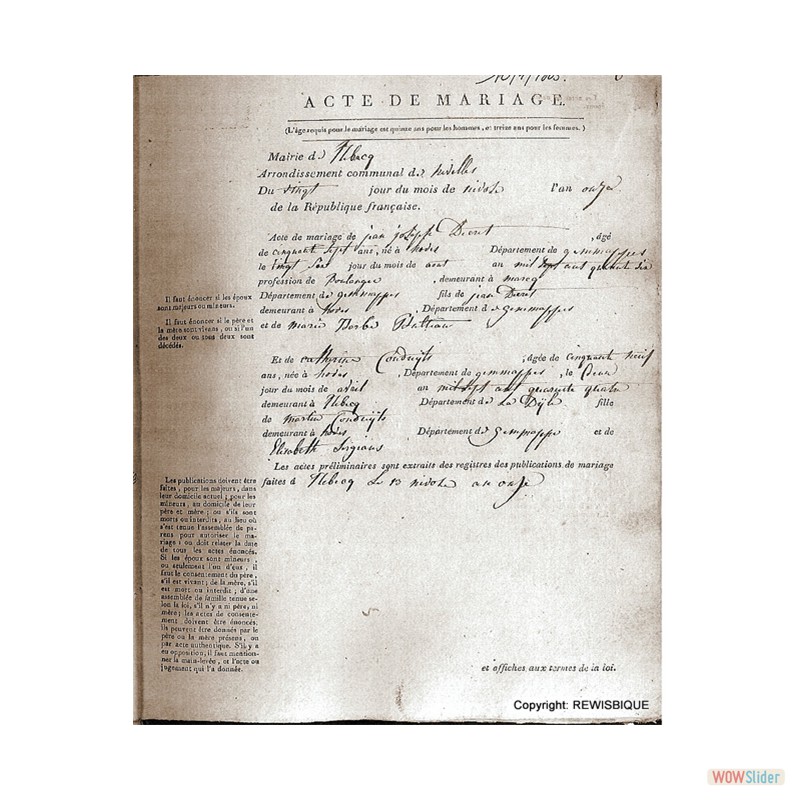 ACTE DE MARIAGE.
(L'âge requis pour le mariage est quinze ans pour les hommes, et treize ans pour les femmes.)
Mairie de Rebecq
Arrondissement communal de nivelles
Du vingt jour du mois de nivose l'an onze
de la République française.
Acte de mariage de jean joseph , âgé
de cinquante sept ans, né à hoves Département de gemmappes
le vingt six jour du mois de aout an mil sept cent quarante
profession de Boulanger , demeurant à marcq
Département de gemmappes fils de jean
demeurant à hoves , Département de gemmappes
et de marie
Et de catherine , âgée de cinquante neuf
ans, née à hoves , Département de gemmappes , le
jour du mois de avril an mil sept cent quarante quatre
demeurant à Rebecq Département de La Dyle fille
de martin
demeurant à hoves , Département de gemmappe et de
Elisabeth
Les actes préliminaires sont extraits des registres des publications de mariage
faites à Rebecq Le 13 nivose an onze
Il faut énoncer si les époux
sont majeurs ou mineurs.
Il faut énoncer si le père et
la mère sont vivans, ou si l'un
des deux ou tous deux sont
décédés.
Les publications doivent être
faites, pour les majeurs, dans
leur domicile actuel; pour les
mineurs, au domicile de leur
père et mère; ou s'ils sont
morts ou interdits, au lieu où
s'est tenue l'assemblée de pa-
rens pour autoriser le ma-
riage: on doit relater la date
de tous les actes énoncés.
Si les époux sont mineurs,
ou seulement l'un d'eux, il
faut le consentement du père,
s'il est vivant; de la mère, s'il
est mort ou interdit; d'une
assemblée de famille tenue se-
lon la loi, s'il n'y a ni père, ni
mère; les actes de consente-
ment doivent être énoncés.
Ils peuvent être donnés par le
père ou la mère présens, ou
par acte authentique. S'il y a
eu opposition, il faut mention-
ner la main-levée, et l'acte ou
jugement qui l'a donnée.
et affiches aux termes de la loi.
Copyright: REWISBIQUE
WOWSlider